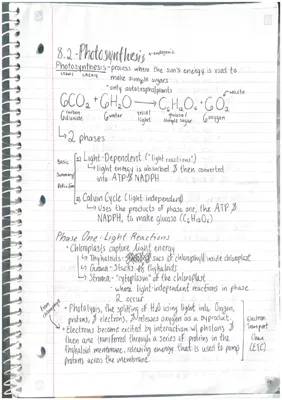 8.2 - Photosynthesis
Photosynthesis - process where the sun's energy is used to
make simple sugars
*only autotrophs/plants
waste
6CO2 + 6H2O → C6H12O6 + 6O2
carbon dioxide water light glucose/simple sugar oxygen
↳ 2 phases
Basic Summary
1) Light-Dependent ("light reactions")
↳ light energy is absorbed & then converted
into ATP & NADPH
2) Calvin Cycle (light independent)
↳ Uses the products of phase one, the ATP &
NADPH, to make glucose (C6H12O6)
Phase One - Light Reactions
• Chloroplasts capture light energy
↳ Thylakoids - sacs of chlorophyll inside chloroplast
↳ Grana - stacks of thylakoids
↳ Stroma - "cytoplasm" of the chloroplast
where light-independent reactions in phase
2 occur
• Photolysis, the splitting of H2O using light into Oxygen,
protons, & electrons, & releases oxygen as a byproduct.
• Electrons become excited by interaction w/ photons &
then are transferred through a series of proteins in the
thylakoid membrane, releasing energy that is used to pump
protons across the membrane.
Electron
Transport
Chain
(ETC)